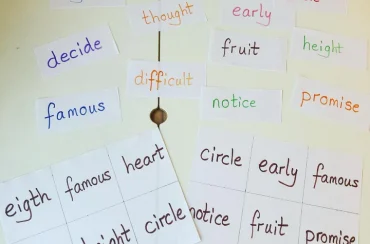 thought
early
decide
fruit
height
difficult
famous
notice
promise
eigth famous heart
circle
circle early famous
notice fruit promise